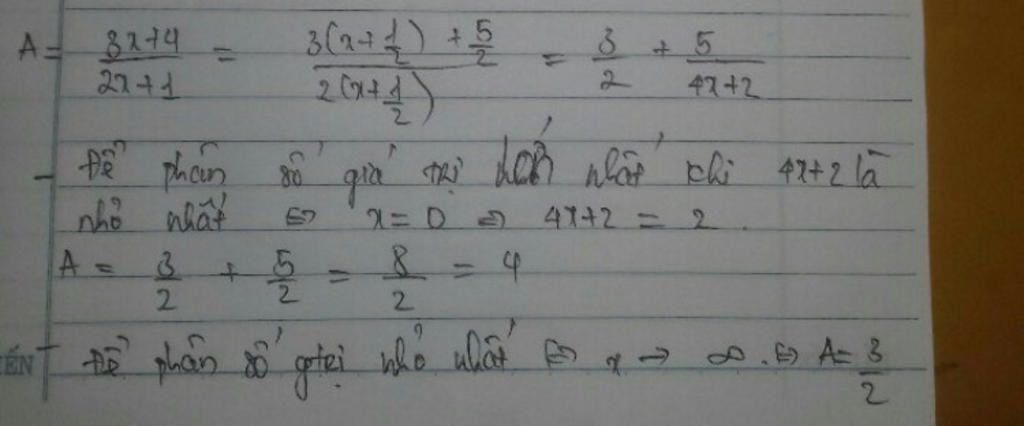 A = \frac{3x+4}{2x+1} = \frac{3(x+\frac{1}{2}) + \frac{5}{2}}{2(x+\frac{1}{2})} = \frac{3}{2} + \frac{5}{4x+2}
- Để phân số giá trị lớn nhất khi 4x+2 là
nhỏ nhất ⇔ x = 0 ⇒ 4x+2 = 2.
A = \frac{3}{2} + \frac{5}{2} = \frac{8}{2} = 4
- Để phân số gtrị nhỏ nhất ⇔ x → ∞. ⇔ A = \frac{3}{2}
ẾN